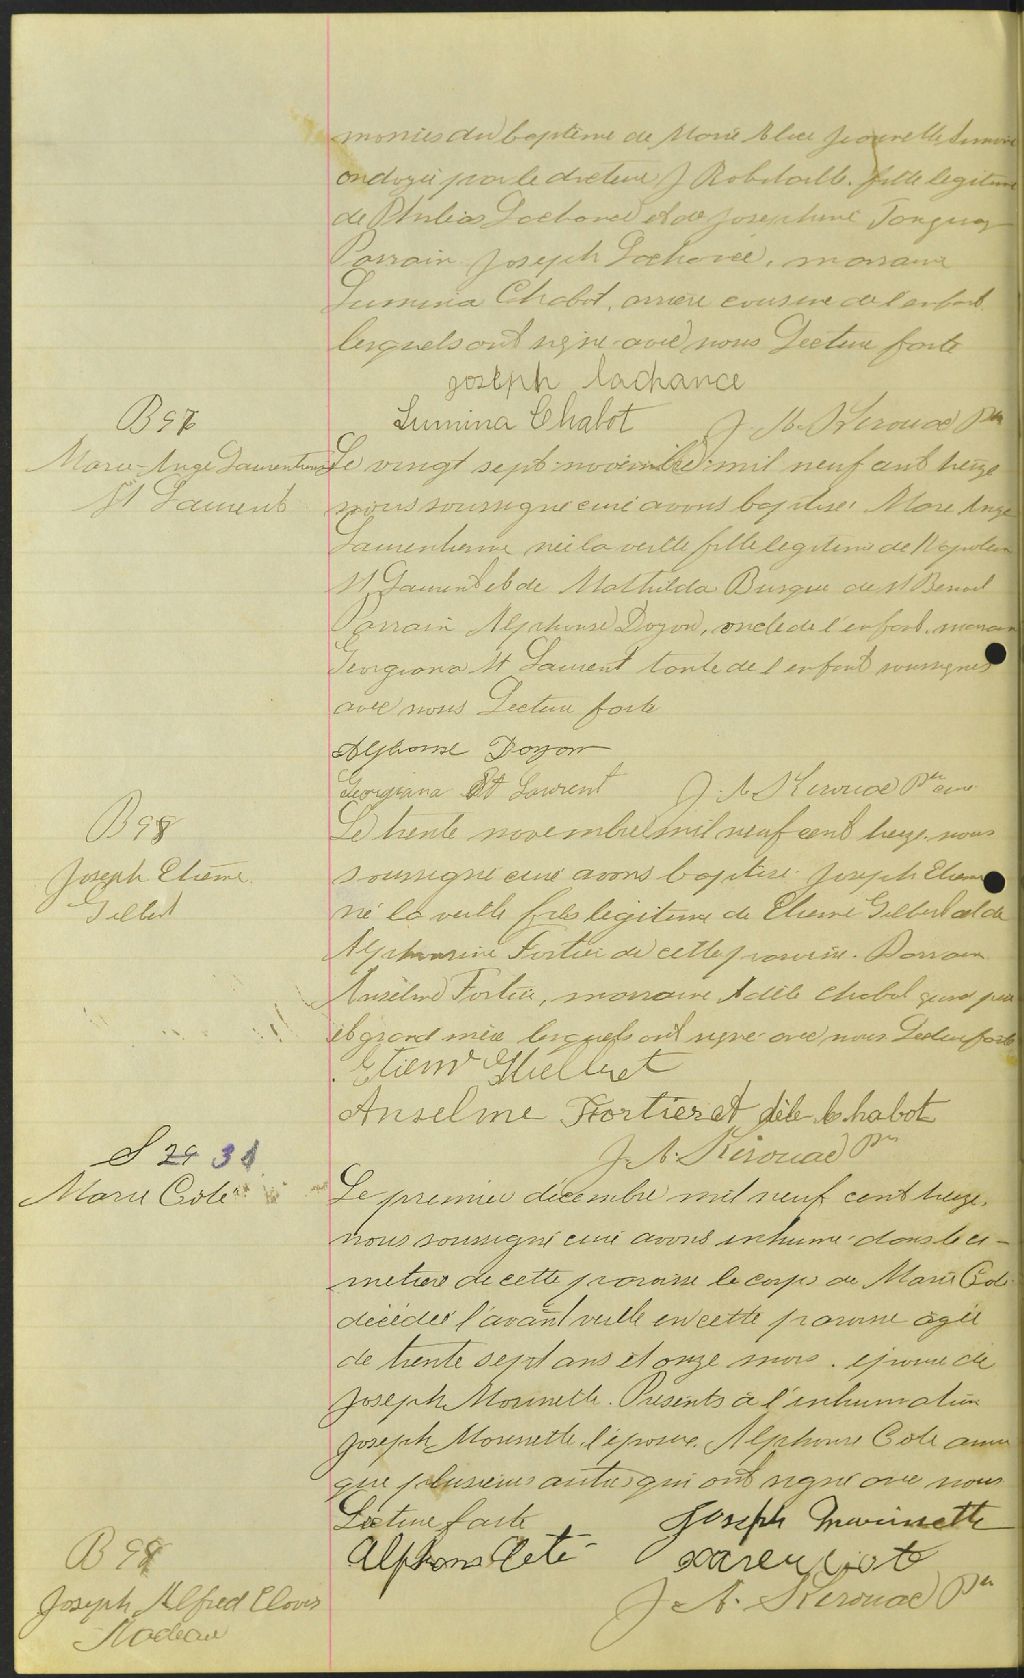 monies du baptême de Marie Alice Jeannette
ondoyée par le docteur J Robitaille. fille legitime
de Philias Lachance et de Josephine Tanguay
Parrain Joseph Lachance, marraine
Lumina Chabot, arrière cousine de l'enfant
lesquels ont signé avec nous Lecture faite
joseph lachance
Lumina Chabot J. A. Kirouac Ptr
B 97
Marie-Ange Laurentienne
St Laurent
Le vingt sept novembre mil neuf cent treize
nous soussigné curé avons baptisé Marie Ange
Laurentienne née la veille fille legitime de Napoleon
St Laurent et de Mathilda Busque de St Benoit
Parrain Alphonse Doyon, oncle de l'enfant, marraine
Georgiana St Laurent tante de l'enfant soussignés
avec nous Lecture faite
Alphonse Doyon
Georgiana St Laurent J. A. Kirouac Ptr curé
B 98
Joseph Etienne
Gilbert
Le trente novembre mil neuf cent treize nous
soussigné curé avons baptisé Joseph Etienne
né la veille fils légitime de Etienne Gilbert et de
Alphonsine Fortier de cette paroisse. Parrain
Anselme Fortier, marraine Adèle Chabot grand père
et grand mère lesquels ont signé avec nous Lecture faite
Etienne Gilbert
Anselme Fortier et dèle chabot
J. A. Kirouac Ptr
S 29 31
Marie Cote
Le premier decembre mil neuf cent treize,
nous soussigné curé avons inhumé dans le ci-
metière de cette paroisse le corps de Marie Cote
décédée l'avant veille en cette paroisse agée
de trente sept ans et onze mois. epouse de
Joseph Morinette. Présents à l'inhumation
Joseph Morinette, l'époux, Alphonse Cote ainsi
que plusieurs autres qui ont signé avec nous
Lecture faite Joseph
Alphons Coté
J. A. Kirouac Ptr
B 99
Joseph Alfred Clovis
Nadeau